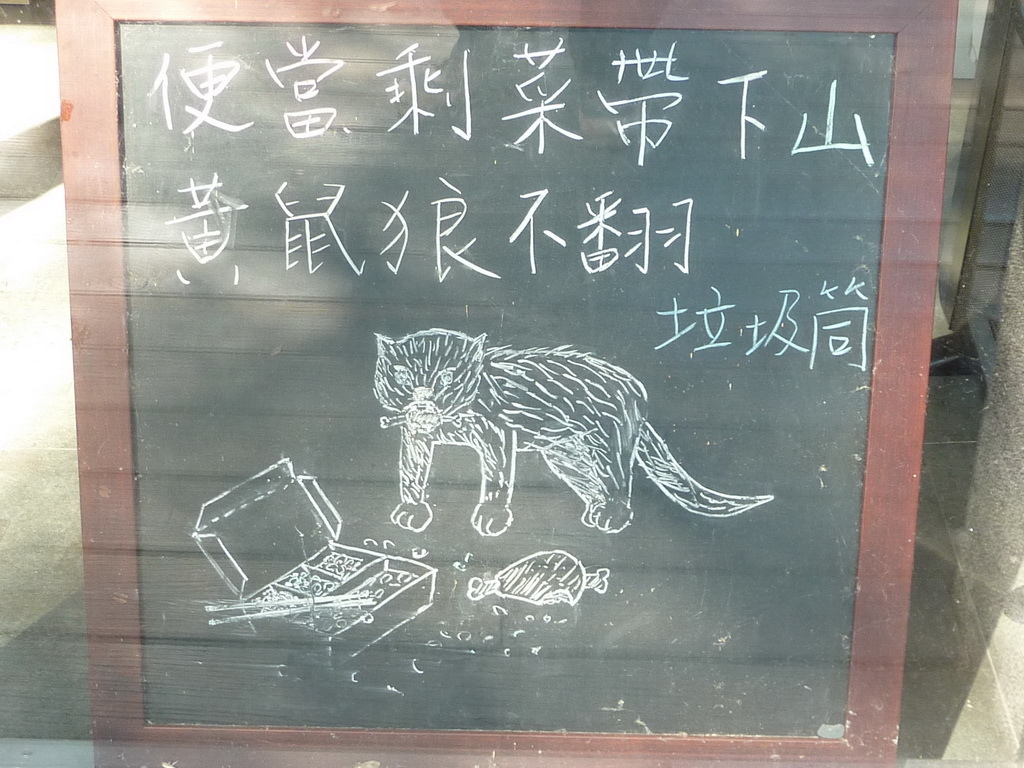 便當剩菜帶下山
黃鼠狼不翻
垃圾筒